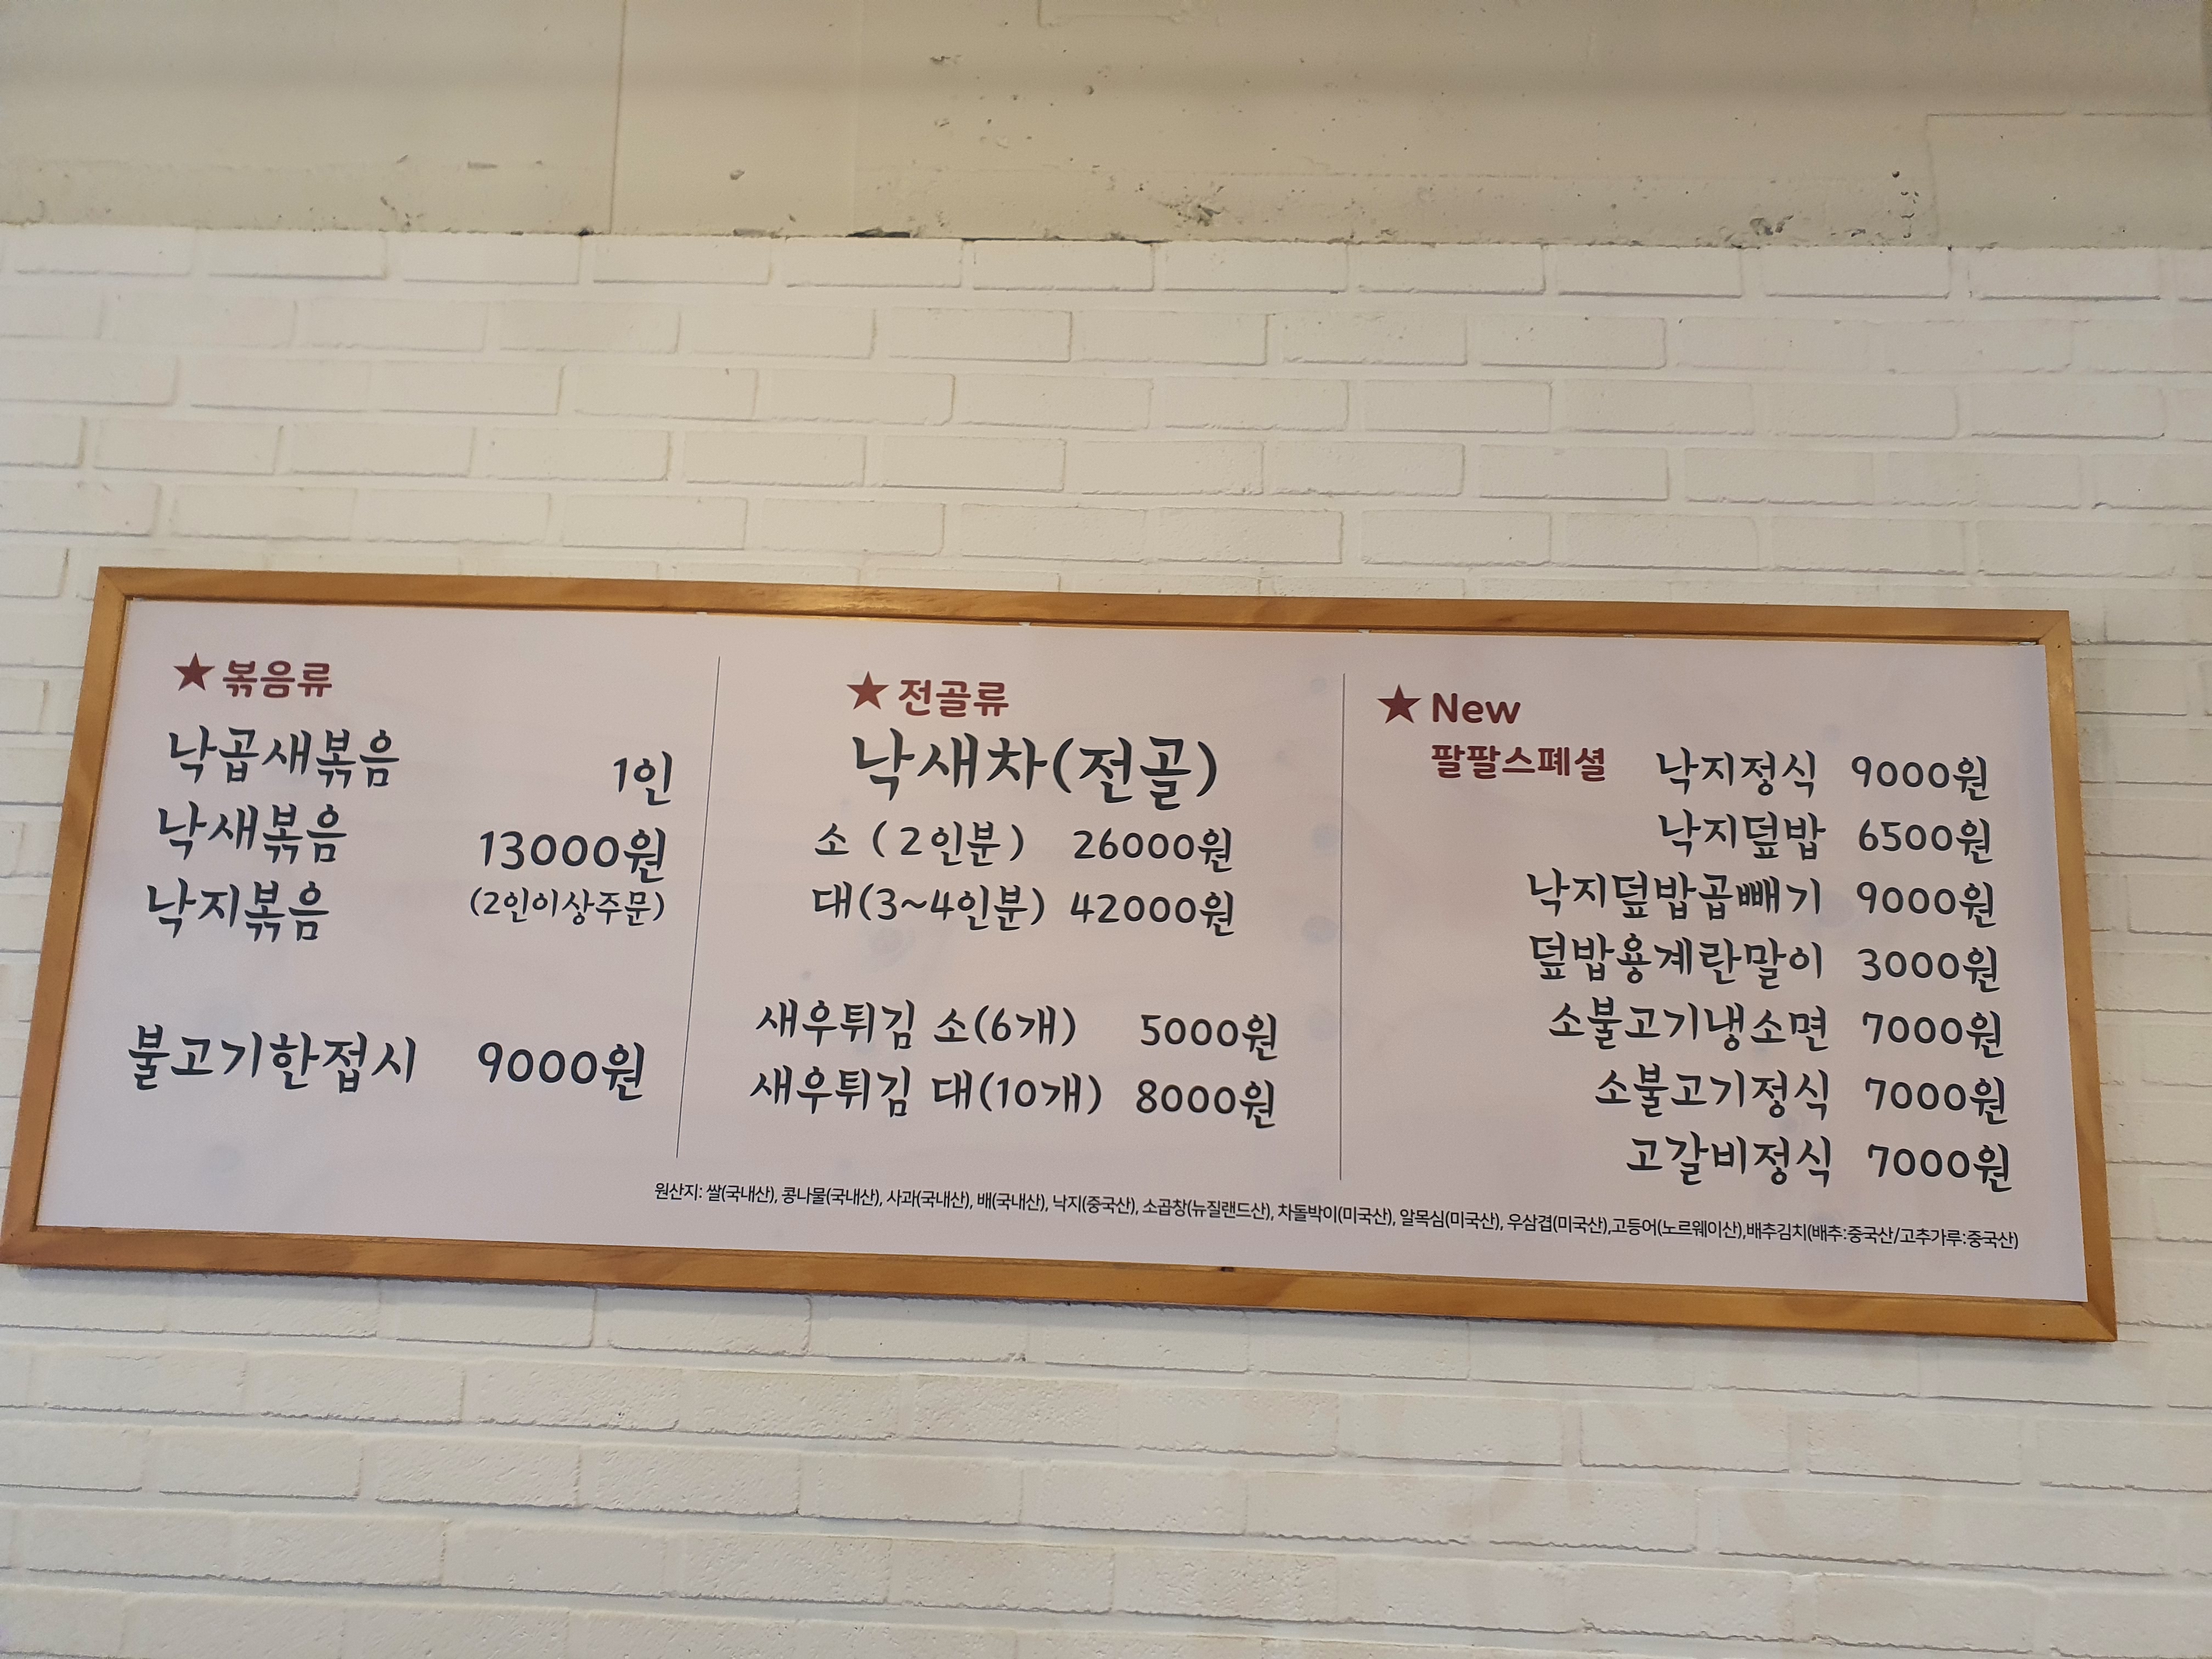 ★ 볶음류
낙곱새볶음
낙새볶음
낙지볶음
1인
13000원
(2인이상주문)
불고기한접시 9000원
★ 전골류
낙새차(전골)
소 ( 2인분 ) 26000원
대(3~4인분) 42000원
새우튀김 소(6개) 5000원
새우튀김 대(10개) 8000원
★ New
팔팔스폐셜
낙지정식 9000원
낙지덮밥 6500원
낙지덮밥곱빼기 9000원
덮밥용계란말이 3000원
소불고기냉소면 7000원
소불고기정식 7000원
고갈비정식 7000원
원산지: 쌀(국내산), 콩나물(국내산), 사과(국내산), 배(국내산), 낙지(중국산), 소곱창(뉴질랜드산), 차돌박이(미국산), 알목심(미국산), 우삼겹(미국산),고등어(노르웨이산),배추김치(배추:중국산/고추가루:중국산)